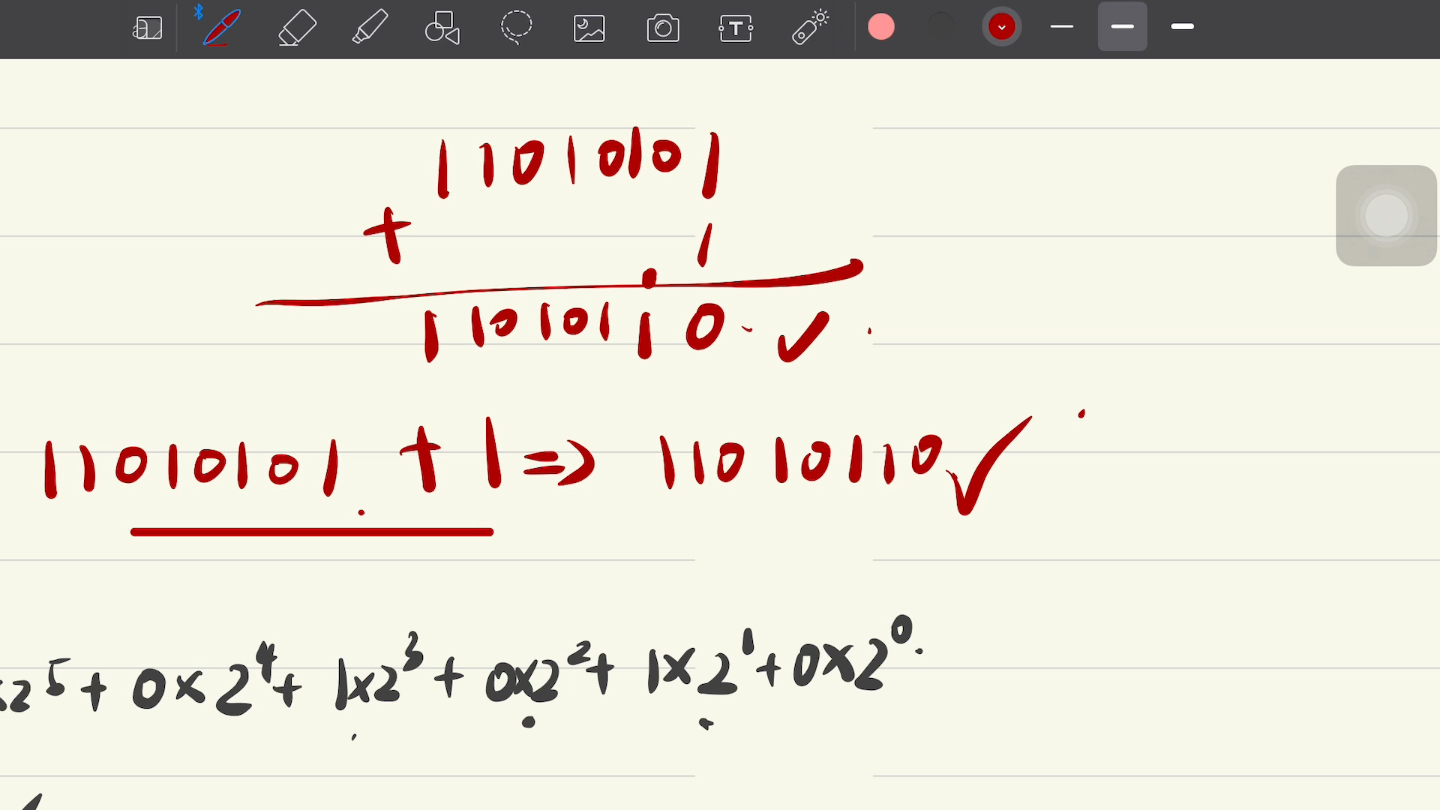 11010101
+ 1
11010110 ✓
11010101 + 1 => 11010110 ✓
x2⁵ + 0x2⁴ + 1x2³ + 0x2² + 1x2¹ + 0x2⁰